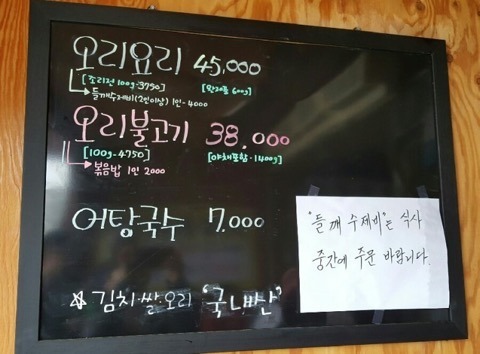 오리요리 45,000
[조리전 100g-3750] [완제품 600g]
들깨수제비(2인이상) 1인-4000
오리불고기 38,000
[100g-4750] [야채포함-1400g]
볶음밥 1인 2000
어탕국수 7,000
"들깨 수제비"는 식사
중간에 주문 바랍니다.
김치·쌀·오리 '국내산'